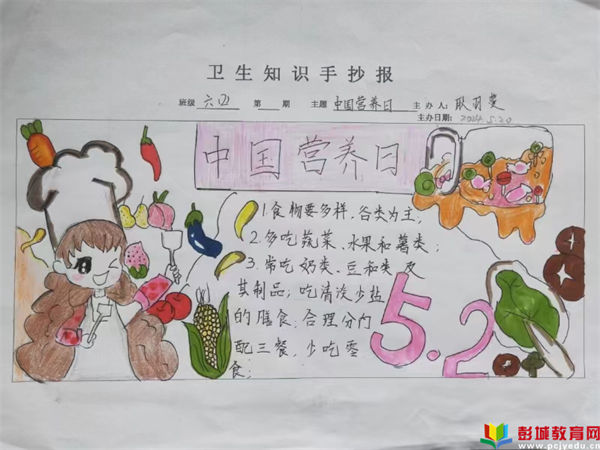 卫生知识手抄报
班级 六(2) 第 期 主题 中国营养日 主办人: 耿羽
主办日期: 2024.5.20
中国营养日
1.食物要多样,谷类为主;
2.多吃蔬菜、水果和薯类;
3.常吃奶类、豆和类及
其制品;吃清淡少盐
的膳食,合理分门
配三餐,少吃零
食;
5.2
彭城教育网
www.pcjyedu.cn